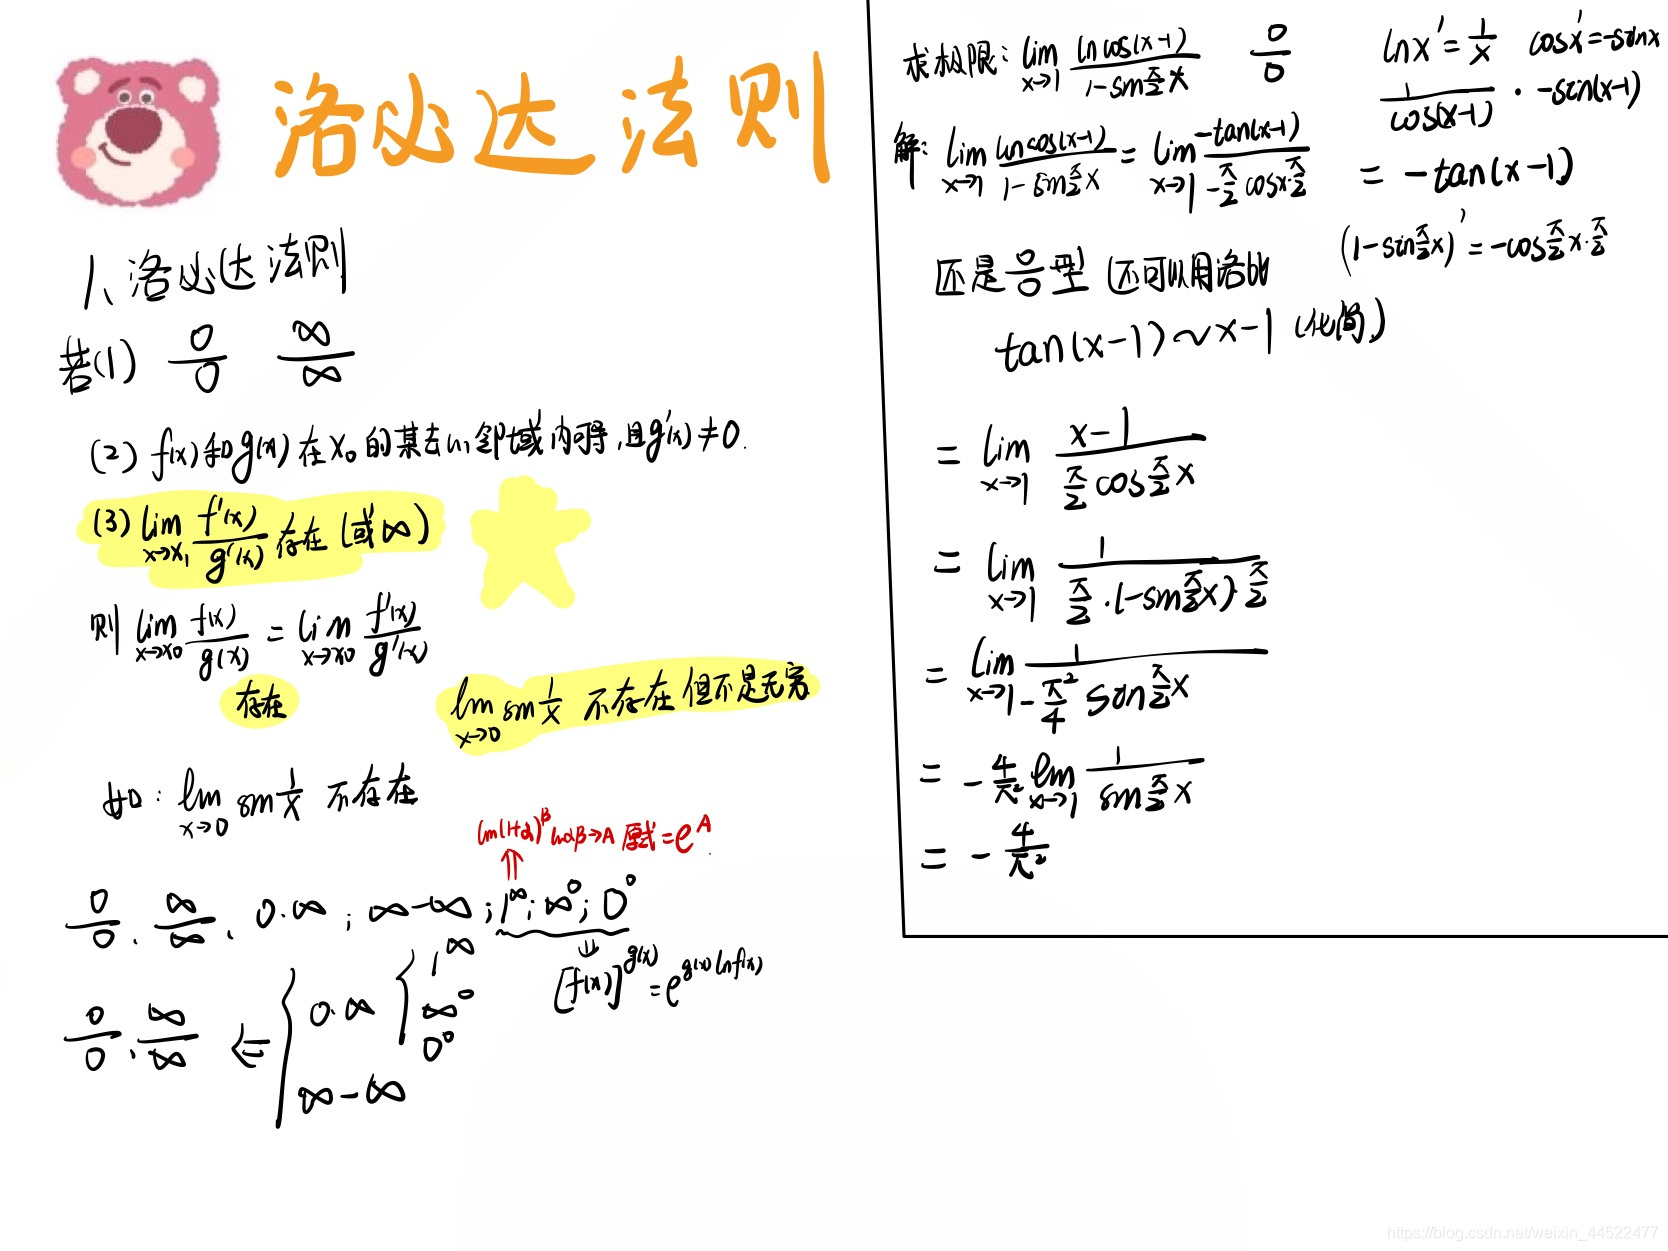 洛必达法则
1、洛必达法则
若(1) 0/0 ∞/∞
(2) f(x)和g(x)在x₀的某去心邻域内可导,且g'(x)≠0.
(3) lim x→x₁ f'(x)/g'(x) 存在(或∞)
则 lim x→x₀ f(x)/g(x) = lim x→x₀ f'(x)/g'(x)
存在
lim x→0 sin 1/x 不存在但不是无穷
如: lim x→0 sin 1/x 不存在
lim(1+α)^β limαβ→A 原式=e^A
0/0、∞/∞、0·∞; ∞-∞; 1^∞; ∞^0; 0^0
[f(x)]^g(x) = e^g(x)lnf(x)
0/0、∞/∞ ⇐ { 0·∞ { 1^∞
∞^0
0^0
∞-∞
求极限: lim x→1 lncos(x-1)/1-sin π/2 x 0/0
lnx' = 1/x cosx' = -sinx
1/cos(x-1) · -sin(x-1)
= -tan(x-1)
(1-sin π/2 x)' = -cos π/2 x · π/2
解: lim x→1 lncos(x-1)/1-sin π/2 x = lim x→1 -tan(x-1)/-π/2 cosx·π/2
还是 0/0 型 还可以用洛必
tan(x-1)~x-1 (化简)
= lim x→1 x-1/π/2 cos π/2 x
= lim x→1 1/π/2·(-sin π/2 x)·π/2
= lim x→1 1/-π²/4 sin π/2 x
= -4/π² lim x→1 1/sin π/2 x
= -4/π²
https://blog.csdn.net/weixin_44522477